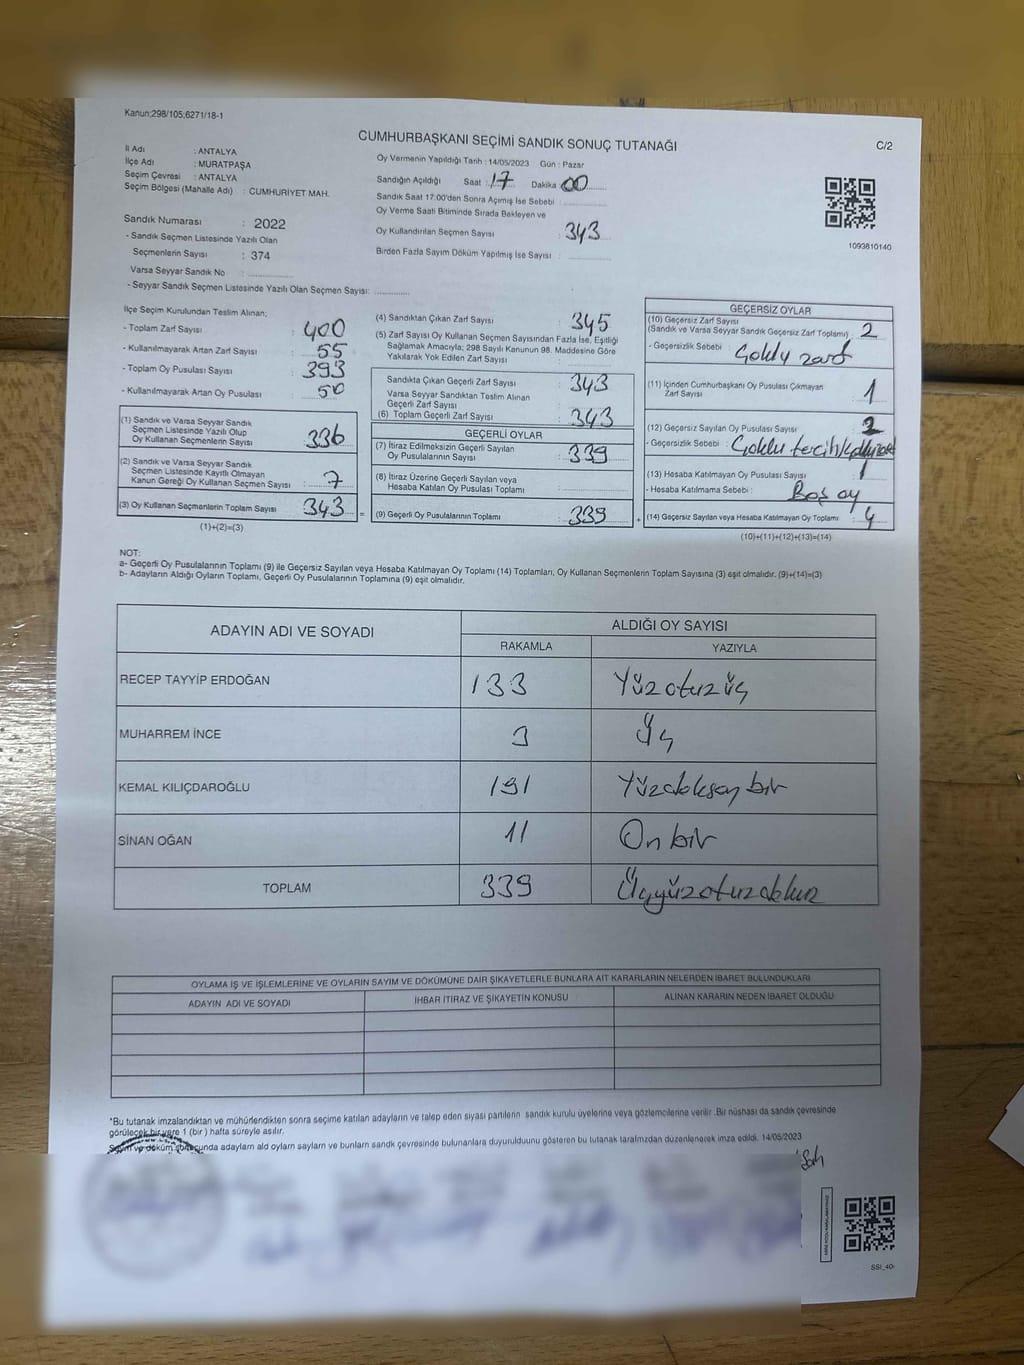 Kanun;298/105;6271/18-1
CUMHURBAŞKANI SEÇİMİ SANDIK SONUÇ TUTANAĞI
C/2
İl Adı : ANTALYA
İlçe Adı : MURATPAŞA
Seçim Çevresi : ANTALYA
Seçim Bölgesi (Mahalle Adı) : CUMHURİYET MAH.
Oy Vermenin Yapıldığı Tarih : 14/05/2023 Gün : Pazar
Sandığın Açıldığı Saat : 17 Dakika 00
Sandık Saat 17:00'den Sonra Açımış İse Sebebi :
Oy Verme Saati Bitiminde Sırada Bekleyen ve
Oy Kullandırılan Seçmen Sayısı : 343
Birden Fazla Sayım Döküm Yapılmış İse Sayısı :
1093810140
Sandık Numarası : 2022
- Sandık Seçmen Listesinde Yazılı Olan
Seçmenlerin Sayısı : 374
Varsa Seyyar Sandık No :
- Seyyar Sandık Seçmen Listesinde Yazılı Olan Seçmen Sayısı:
İlçe Seçim Kurulundan Teslim Alınan;
- Toplam Zarf Sayısı : 400
- Kullanılmayarak Artan Zarf Sayısı : 55
- Toplam Oy Pusulası Sayısı : 393
- Kullanılmayarak Artan Oy Pusulası : 50
(1) Sandık ve Varsa Seyyar Sandık
Seçmen Listesinde Yazılı Olup
Oy Kullanan Seçmenlerin Sayısı : 336
(2) Sandık ve Varsa Seyyar Sandık
Seçmen Listesinde Kayıtlı Olmayan
Kanun Gereği Oy Kullanan Seçmen Sayısı : 7
(3) Oy Kullanan Seçmenlerin Toplam Sayısı : 343
(1)+(2)=(3)
(4) Sandıktan Çıkan Zarf Sayısı : 345
(5) Zarf Sayısı Oy Kullanan Seçmen Sayısından Fazla İse, Eşitliği
Sağlamak Amacıyla; 298 Sayılı Kanunun 98. Maddesine Göre
Yakılarak Yok Edilen Zarf Sayısı :
Sandıkta Çıkan Geçerli Zarf Sayısı : 343
Varsa Seyyar Sandıktan Teslim Alınan
Geçerli Zarf Sayısı :
(6) Toplam Geçerli Zarf Sayısı : 343
GEÇERLİ OYLAR
(7) İtiraz Edilmeksizin Geçerli Sayılan
Oy Pusulalarının Sayısı : 339
(8) İtiraz Üzerine Geçerli Sayılan veya
Hesaba Katılan Oy Pusulaları Toplamı :
(9) Geçerli Oy Pusulalarının Toplamı : 339
GEÇERSİZ OYLAR
(10) Geçersiz Zarf Sayısı
(Sandık ve Varsa Seyyar Sandık Geçersiz Zarf Toplamı) 2
- Geçersizlik Sebebi : Çoklu zarf
(11) İçinden Cumhurbaşkanı Oy Pusulası Çıkmayan
Zarf Sayısı : 1
(12) Geçersiz Sayılan Oy Pusulası Sayısı :
- Geçersizlik Sebebi : Çoklu tercih/
(13) Hesaba Katılmayan Oy Pusulası Sayısı : 1
- Hesaba Katılmama Sebebi : Boş oy
(14) Geçersiz Sayılan veya Hesaba Katılmayan Oy Toplamı : 4
(10)+(11)+(12)+(13)=(14)
NOT:
a- Geçerli Oy Pusulalarının Toplamı (9) ile Geçersiz Sayılan veya Hesaba Katılmayan Oy Toplamı (14) Toplamları, Oy Kullanan Seçmenlerin Toplam Sayısına (3) eşit olmalıdır. (9)+(14)=(3)
b- Adayların Aldığı Oyların Toplamı, Geçerli Oy Pusulalarının Toplamına (9) eşit olmalıdır.
ADAYIN ADI VE SOYADI ALDIĞI OY SAYISI
RAKAMLA YAZIYLA
RECEP TAYYİP ERDOĞAN 133 Yüzotuzüç
MUHARREM İNCE 3 Üç
KEMAL KILIÇDAROĞLU 191 Yüzdoksan bir
SİNAN OĞAN 11 On bir
TOPLAM 339 Üçyüzotuzdokuz
OYLAMA İŞ VE İŞLEMLERİNE VE OYLARIN SAYIM VE DÖKÜMÜNE DAİR ŞİKAYETLERLE BUNLARA AİT KARARLARIN NELERDEN İBARET BULUNDUKLARI
ADAYIN ADI VE SOYADI İHBAR İTİRAZ VE ŞİKAYETİN KONUSU ALINAN KARARIN NEDEN İBARET OLDUĞU
*Bu tutanak imzalandıktan ve mühürlendikten sonra seçime katılan adayların ve talep eden siyasi partilerin sandık kurulu üyelerine veya gözlemcilerine verilir .Bir nüshası da sandık çevresinde
görülecek bir yere 1 (bir ) hafta süreyle asılır.
Sayım ve döküm sonucunda adayların ald oyların sayların ve bunların sandık çevresinde bulunanlara duyurulduunu gösteren bu tutanak tarafmzdan düzenlenerek imza edildi. 14/05/2023
SSI_40-